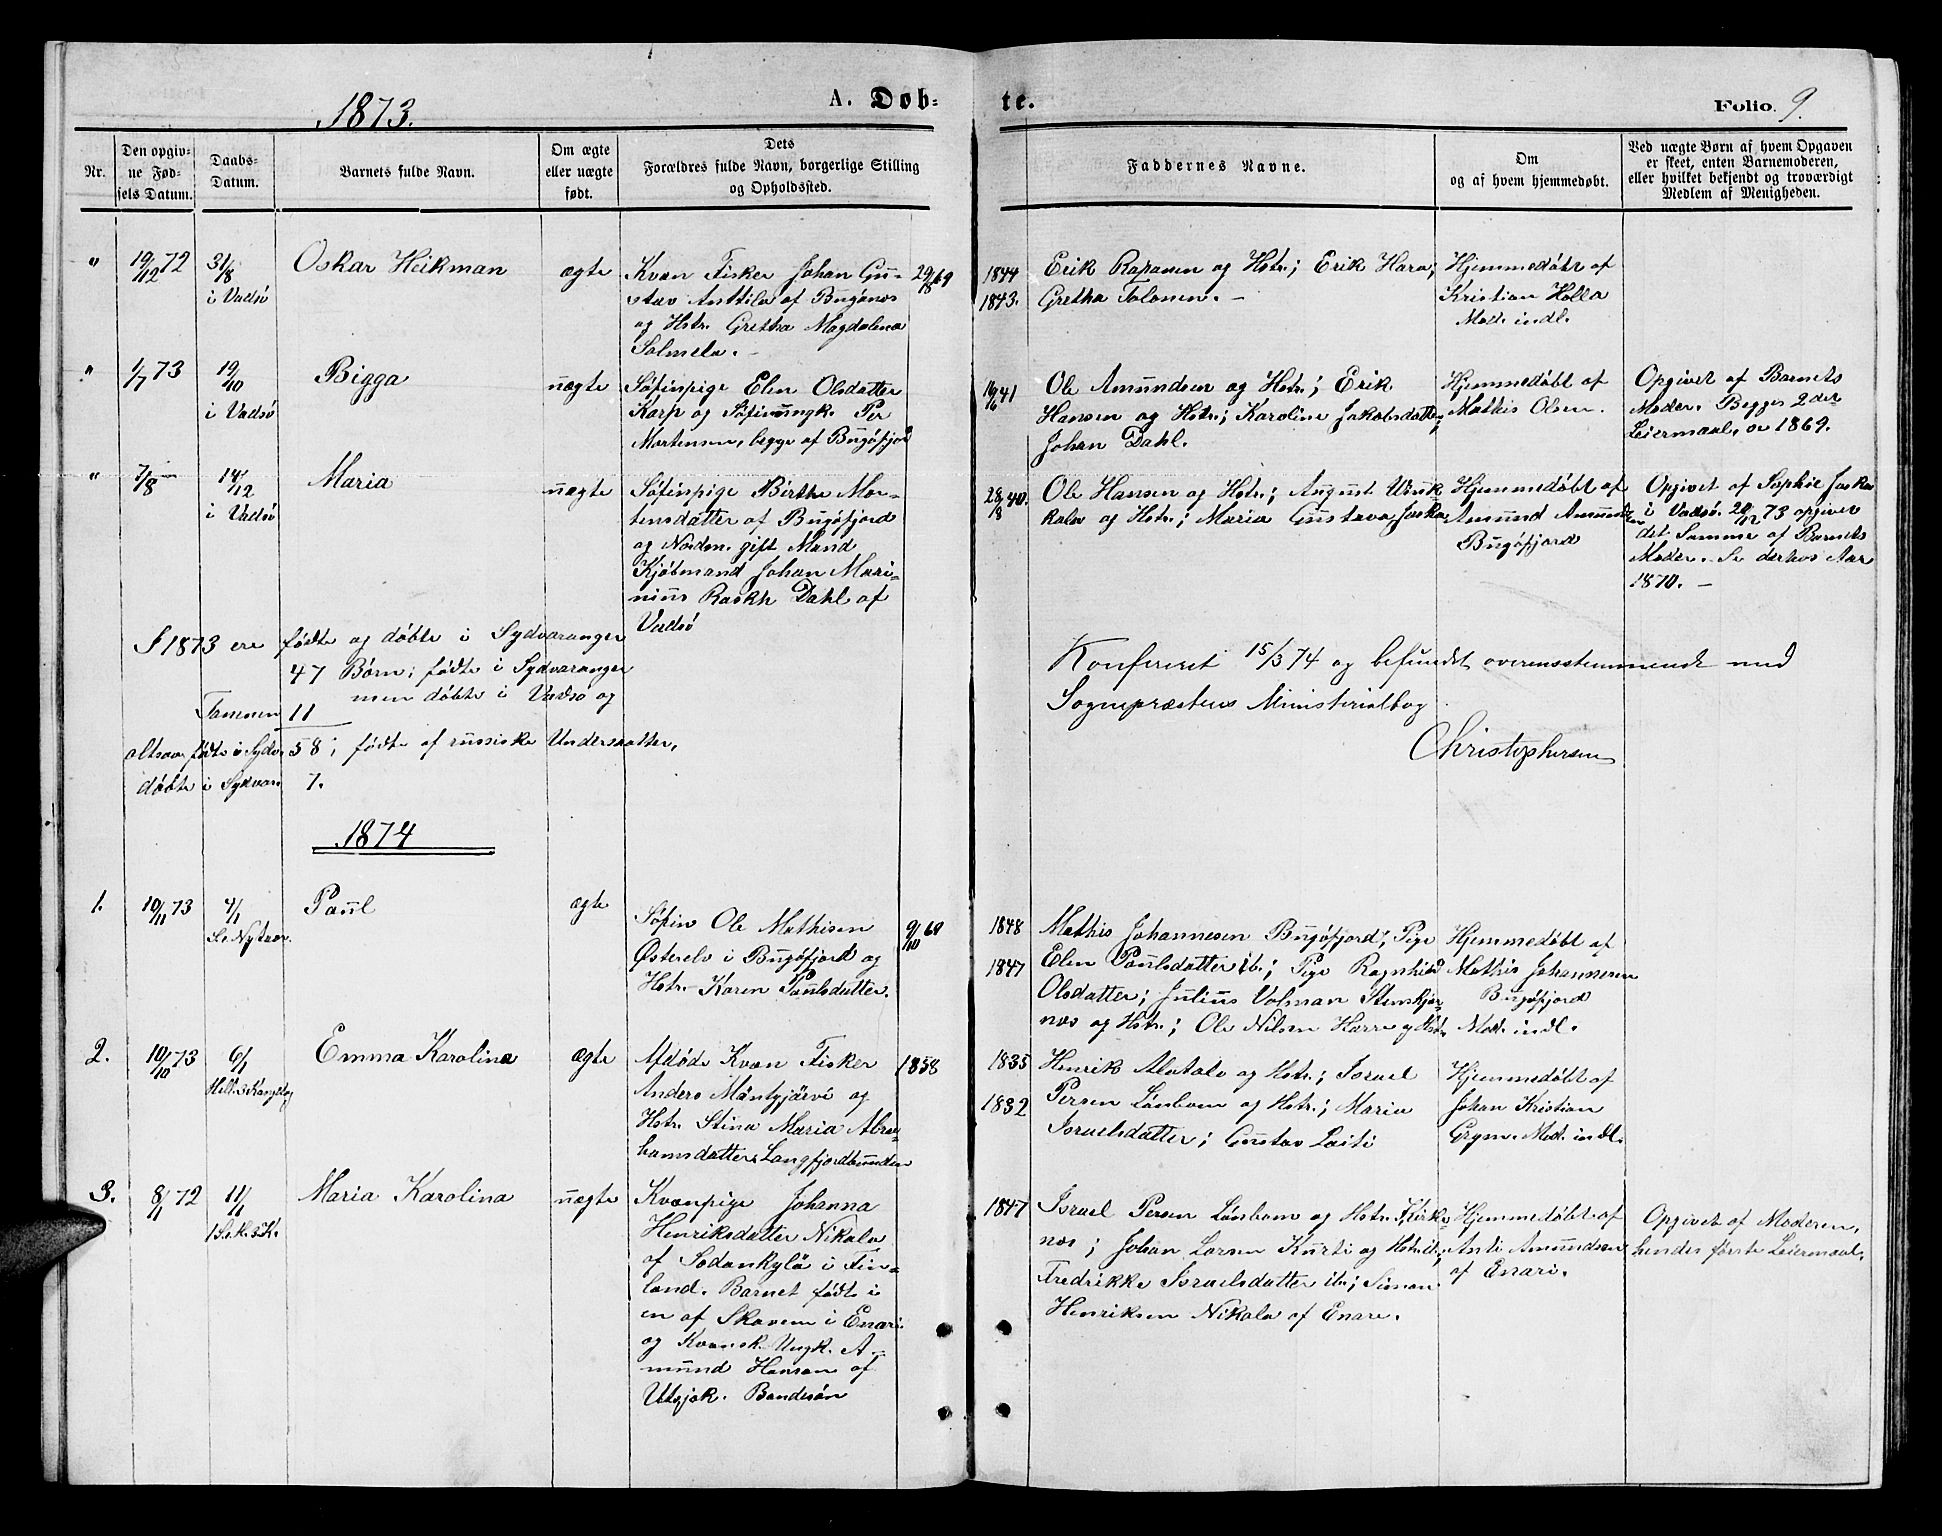 1873.
A. Døb-
te.
Folio. 9.
Nr.
Den opgiv-
ne Fød-
sels Datum.
Daabs-
Datum.
Barnets fulde Navn.
Om ægte
eller uægte
født.
Dets
Forældres fulde Navn, borgerlige Stilling
og Opholdssted.
Faddernes Navne.
Om
og af hvem hjemmedøbt.
Ved uægte Børn af hvem Opgaven
er skeet, enten Barnemoderen,
eller hvilket bekjendt og troværdigt
Medlem af Menigheden.
"
19/12 72
31/8
i Vadsø
Oskar Heikman
ægte
Kvæn Fisker Johan Gu-
stav Anttila af Bugønæs
og Hstr. Gretha Magdalena
Salmela. -
29/8 69
1844
1843.
Erik Rapanen og Hstr.; Erik Hara;
Gretha Tolonen. -
Hjemmedøbt af
Kristian Holla
Mod. indl.
"
1/7 73
19/10
i Vadsø
Bigga
uægte
Søfinpige Elen Olsdatter
Karp og Søfinungk. Per
Mortensen, begge af Bugøfjord
16/6 41
Ole Amundsen og Hstr.; Erik
Hansen og Hstr.; Karoline Jakobsdatter;
Johan Dahl.
Hjemmedøbt af
Mathis Olsen.
Opgivet af Barnets
Moder. Begges 2det
Leiermaal, cfr 1869.
"
7/8
14/12
i Vadsø
Maria
uægte
Søfinpige Birthe Mor-
tensdatter af Bugøfjord
og Nordm. gift Mand
Kjøbmand Johan Mari-
nius Raskh Dahl af
Vadsø
28/8 40.
Ole Hansen og Hstr.; August
og Hstr.; Maria Gustava Jaska
Hjemmedøbt af
Amund Amundsen
Bugøfjord
Opgivet af Sophie Jaska
i Vadsø. 20/12 73 opgivet
det Samme af Barnets
Moder. Se derhos Aar
1870. -
I 1873 ere fødte og døbte i Sydvaranger
47 Børn; fødte i Sydvaranger
men døbte i Vadsø og
11
altsaa fødte i Sydv. 58; fødte af russiske Undersaatter,
døbte i Sydvar. 7.
Konfereret 15/3 74 og befundet overensstemmende med
Sognepræstens Ministerialbog.
Christophersen
1874
1.
10/11 73
4/1
S. e. Nytaar.
Paul
ægte
Søfin Ole Mathisen
Østerelv i Bugøfjord og
Hstr. Karen Paulsdatter.
9/10 68
1848
1847
Mathis Johannesen Bugøfjord; Pige
Elen Paulsdatter ib.; Pige Ragnhild
Olsdatter; Julius Volman Stenskjær-
næs og Hstr.; Ole Nilsen Harre og Hstr.
Hjemmedøbt af
Mathis Johannesen
Bugøfjord
Mod. indl.
2.
10/10 73
6/1
Hell. 3 Kongedag
Emma Karolina
ægte
Afdøde Kvæn Fisker
Anders Mäntyjärvi og
Hstr. Stina Maria Abra-
hamsdatter, Langfjordbunden
1858
1835
1832
Henrik Alatalo og Hstr.; Israel
Persen Lönbom og Hstr.; Maria
Israelsdatter; Gustav Laiti
Hjemmedøbt af
Johan Kristian
Grym. Mod. indl.
3.
8/1 72
11/1
1 S. e. H. 3 K.
Maria Karolina
uægte
Kvænpige Johanna
Henriksdatter Nikala
af Sodankylä i Fin-
land. Barnet født i
en af Skovene i Enari
og Kvænsk Ungk. A-
mund Hansen af
Utsjok. Bondesøn
1847
Israel Persen Lönbom og Hstr. Kirke-
næs; Johan Larsen Kurti og Hstr. ib.;
Fredrikke Israelsdatter ib.; Simon
Henriksen Nikala af Enare.
Hjemmedøbt af
Anti Amundsen
af Enari.
Opgivet af Moderen,
hendes første Leiermaal.